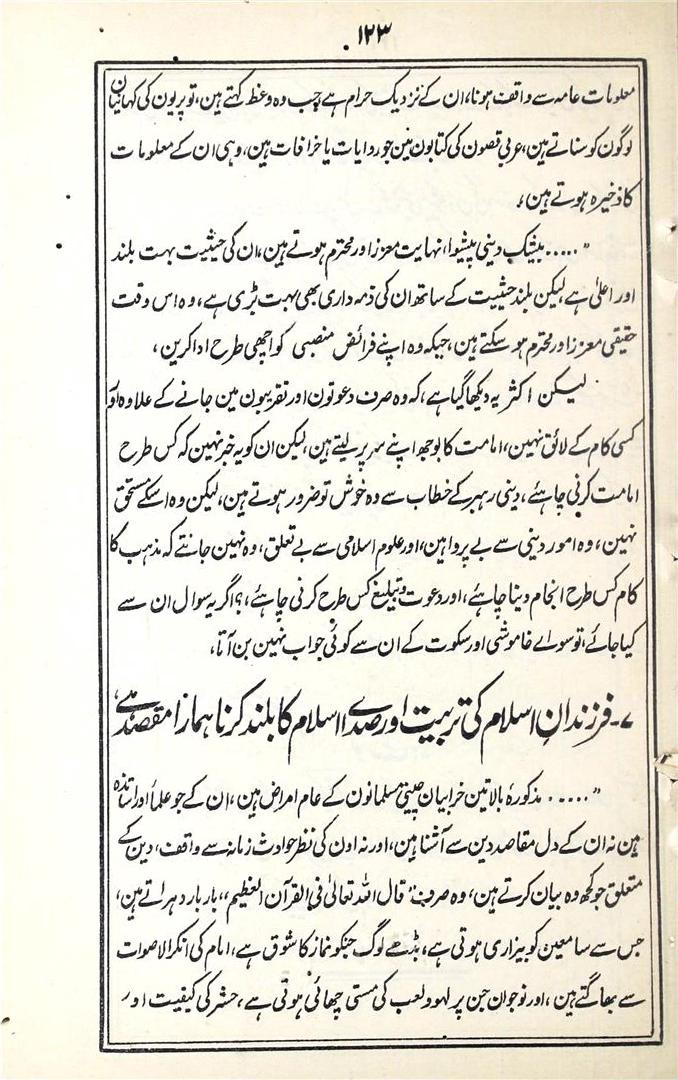 ۱۲۳
معلومات عامہ سے واقف ہونا، ان کے نزدیک حرام ہے، جب وہ وعظ کہتے ہین، تو پریون کی کہانیان
لوگون کو سناتے ہین، عربی قصون کی کتابون مین جو روایات یا خرافات ہین، وہی ان کے معلومات
کا ذخیرہ ہوتے ہین،
"..... بیشک دینی پیشوا، نہایت معزز اور محترم ہوتے ہین، ان کی حیثیت بہت بلند
اور اعلیٰ ہے، لیکن بلند حیثیت کے ساتھ ان کی ذمہ داری بھی بہت بڑی ہے، وہ اس وقت
حقیقی معزز اور محترم ہو سکتے ہین، جبکہ وہ اپنے فرائض منصبی کو اچھی طرح ادا کرین،
لیکن اکثر یہ دیکھا گیا ہے، کہ وہ صرف دعوتون اور تقریبون مین جانے کے علاوہ اور
کسی کام کے لائق نہین، امامت کا بوجھ اپنے سر پر لیتے ہین، لیکن ان کو یہ خبر نہین کہ کس طرح
امامت کرنی چاہئے، دینی رہبر کے خطاب سے وہ خوش تو ضرور ہوتے ہین، لیکن وہ اسکے مستحق
نہین، وہ امور دینی سے بے پروا ہین، اور علوم اسلامی سے بے تعلق، وہ نہین جانتے کہ مذہب کا
کام کس طرح انجام دینا چاہئے، اور دعوت و تبلیغ کس طرح کرنی چاہئے، ؟ اگر یہ سوال ان سے
کیا جائے، تو سوائے خاموشی اور سکوت کے ان سے کوئی جواب نہین بن آتا،
۷۔ فرزندانِ اسلام کی تربیت اور صدائے اسلام کا بلند کرنا ہمارا مقصد ہے،
"..... مذکورۂ بالا تین خرابیان چینی مسلمانون کے عام امراض ہین، ان کے جو علماء اور اساتذہ
ہین نہ ان کے دل مقاصد دین سے آشنا ہین، اور نہ اون کی نظر حوادث زمانہ سے واقف، دین کے
متعلق جو کچھ وہ بیان کرتے ہین، وہ صرف "قال اللہ تعالیٰ فی القرآن العظیم"، بار بار دہراتے ہین،
جس سے سامعین کو بیزاری ہوتی ہے، بڈھے لوگ جنکو نماز کا شوق ہے، امام کی انکر الاصوات
سے بھاگتے ہین، اور نوجوان جن پر لہو و لعب کی مستی چھائی ہوتی ہے، حشر کی کیفیت اور